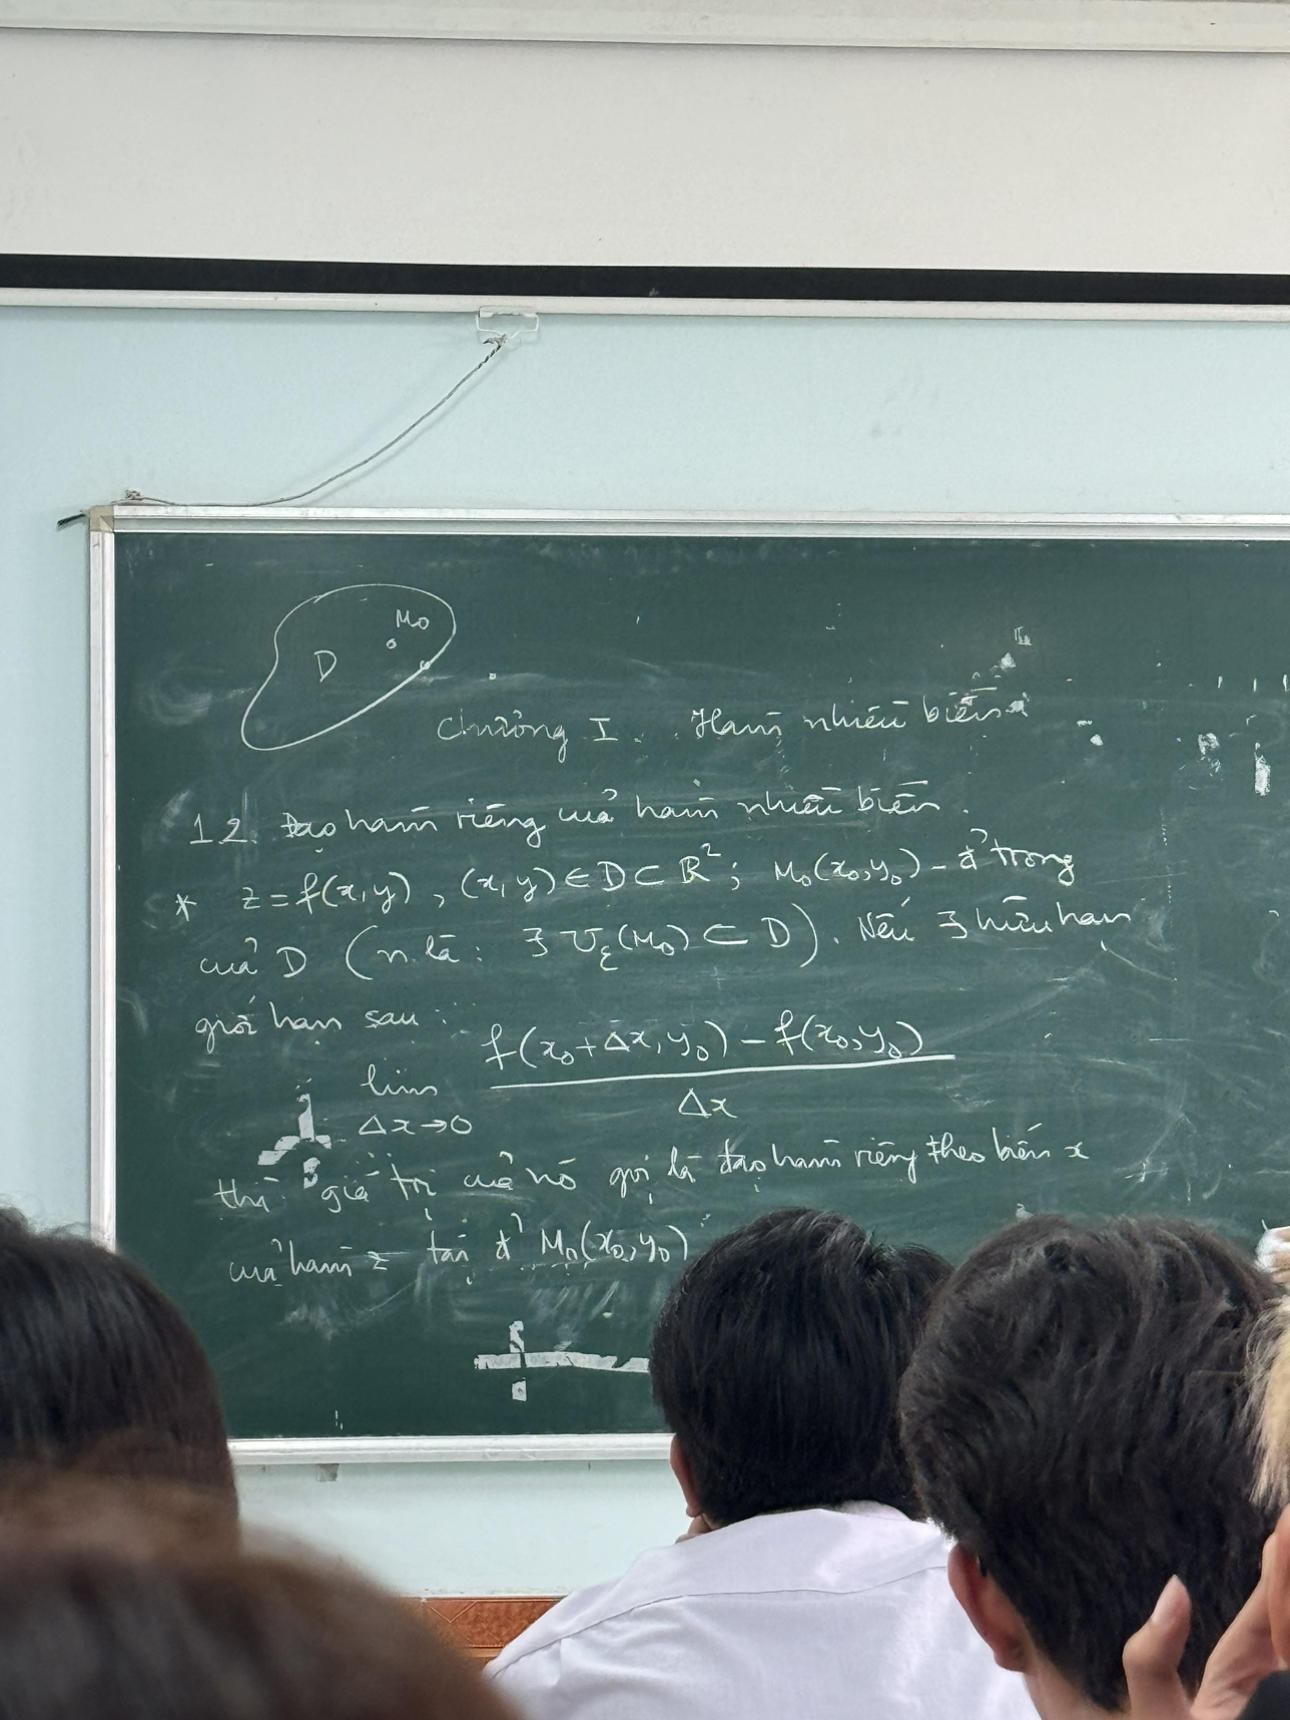 M₀
D
Chương I. Hàm nhiều biến
1.2. Đạo hàm riêng của hàm nhiều biến.
* z = f(x,y), (x,y) ∈ D ⊂ ℝ²; M₀(x₀,y₀) - đ' trong
của D (n.là: ∃ U_ε(M₀) ⊂ D). Nếu ∃ hữu hạn
giới hạn sau:
lim_{Δx→0} (f(x₀+Δx, y₀) - f(x₀,y₀)) / Δx
thì giá trị của nó gọi là đạo hàm riêng theo biến x
của hàm z tại đ' M₀(x₀,y₀)